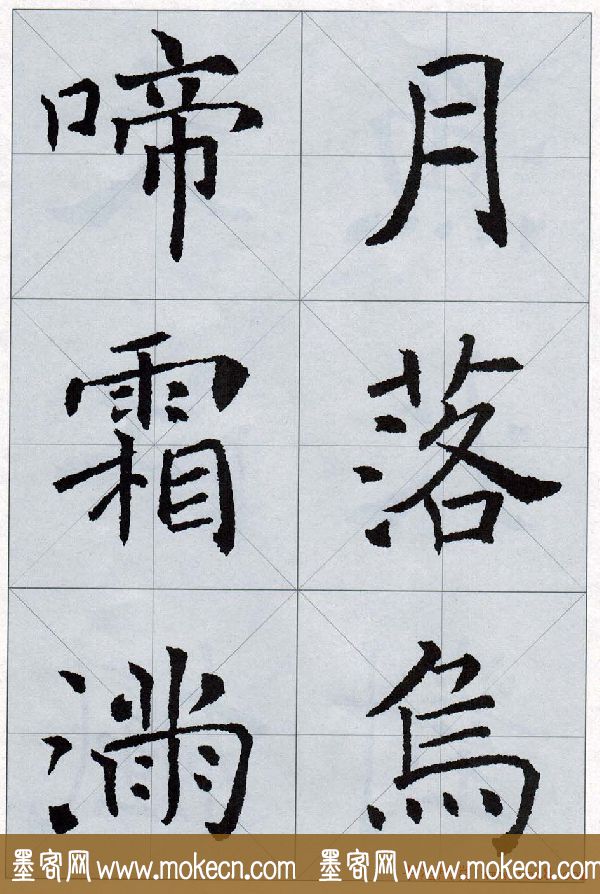 月落烏
啼霜滿
墨客网 www.mokecn.com 墨客网 www.mokecn.com